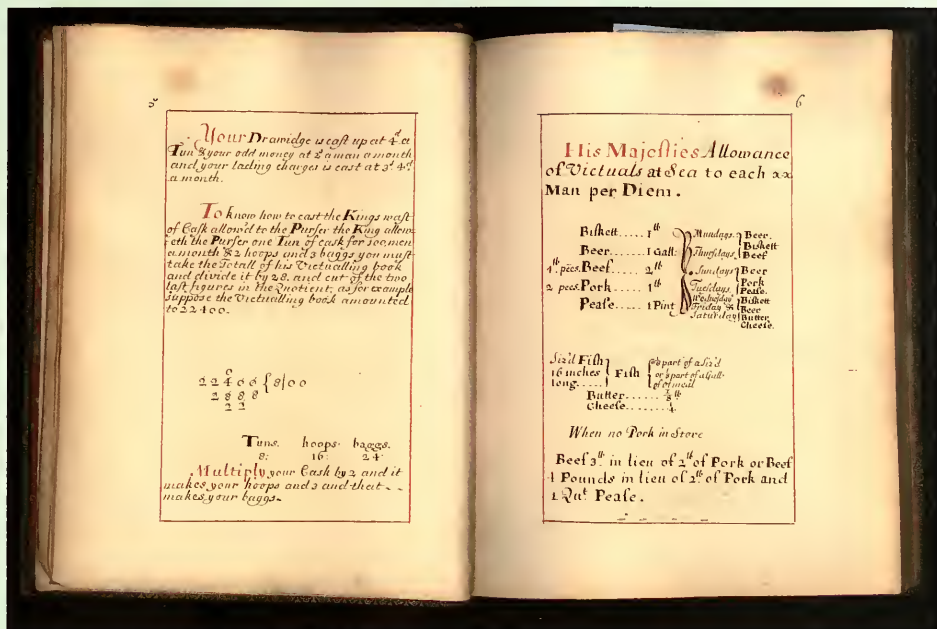 5
Your Drawidge is cast up at 4d. a
Tun & your odd money at 2d a man a month
and your lading charges is cast at 3s. 4d.
a month.
To know how to cast the Kings wast
of Cask allow'd to the Purser the King allow-
eth the Purser one Tun of cask for 100 men
a month & 2 hoops and 3 baggs you must
take the Totall of his Victualling book
and divide it by 28. and cut of the two
last figures in the Quotient; as for example
suppose the Victualling book amounted
to 22400.
0
22400 { 8|00
2888
22
Tuns. hoops. baggs.
8: 16: 24.
Multiply your Cask by 2 and it
makes your hoops and 3 and that
makes your baggs.
6
His Majesties Allowance
of Victuals at Sea to each
Man per Diem.
Biskett..... 1 lb
Beer..... 1 Gall:
4 lb. peces. Beef..... 2 lb
2 peces. Pork..... 1 lb
Pease..... 1 Pint
Mundays.
Thursdays.
Beer.
Biskett
Beef
Sundays
Tuesdays.
Beer
Pork
Pease.
Wednesday
Friday &
Saturday
Biskett
Beer
Butter
Cheese.
Siz'd Fish
16 inches
long....
Fish
⅛ part of a Siz'd
or ⅛ part of a Gall:
of otmeal
Butter....... ⅛ lb
Cheese....... ¼
When no Pork in Store
Beef 3 lb. in lieu of 2 lb of Pork or Beef
4 Pounds in lieu of 2 lb. of Pork and
1 Qut Pease.